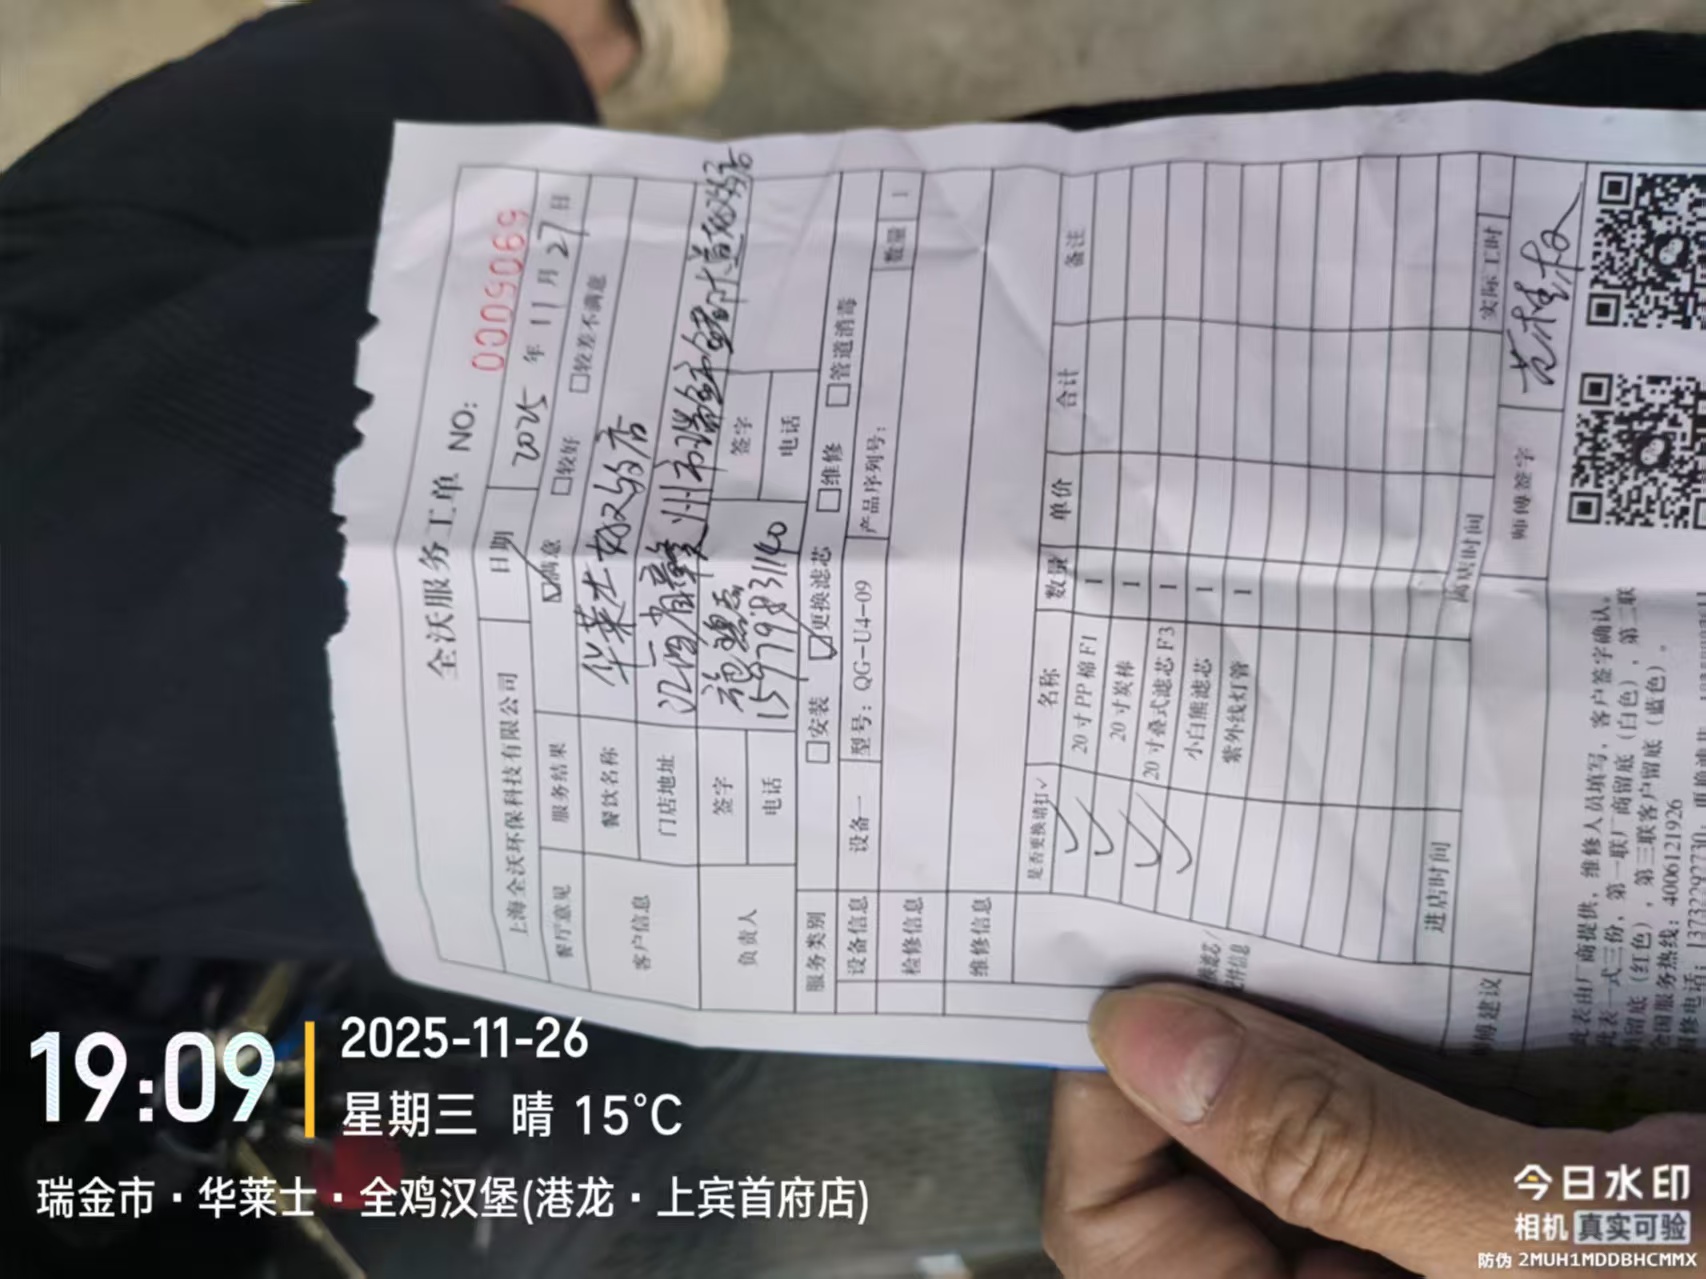 全沃服务工单 NO: 0005069
上海全沃环保科技有限公司 日期 2025 年 11 月 27 日
餐厅意见 服务结果 ☑满意 □较好 □较差不满意
客户信息 餐饮名称 华莱士
门店地址 江西省赣州市瑞金市
负责人 签字 签字
电话 15979831140 电话
服务类别 □安装 ☑更换滤芯 □维修 □管道消毒
设备信息 设备一 型号: QG-U4-09 产品序列号: 数量 1
检修信息
维修信息
是否更换请打✓ 名称 数量 单价 合计 备注
✓ 20寸PP棉F1 1
✓ 20寸炭棒 1
✓ 20寸叠式滤芯F3 1
✓ 小白熊滤芯 1
紫外线灯管 1
进店时间 离店时间 实际工时
师傅签字
建议
此表由厂商提供，维修人员填写，客户签字确认。
此表一式三份，第一联厂商留底（白色），第二联
留底（红色），第三联客户留底（蓝色）。
全国服务热线：4006121926
19:09
2025-11-26
星期三 晴 15°C
瑞金市·华莱士·全鸡汉堡(港龙·上宾首府店)
今日水印
相机 真实可验
防伪 2MUH1MDDBHCMMX